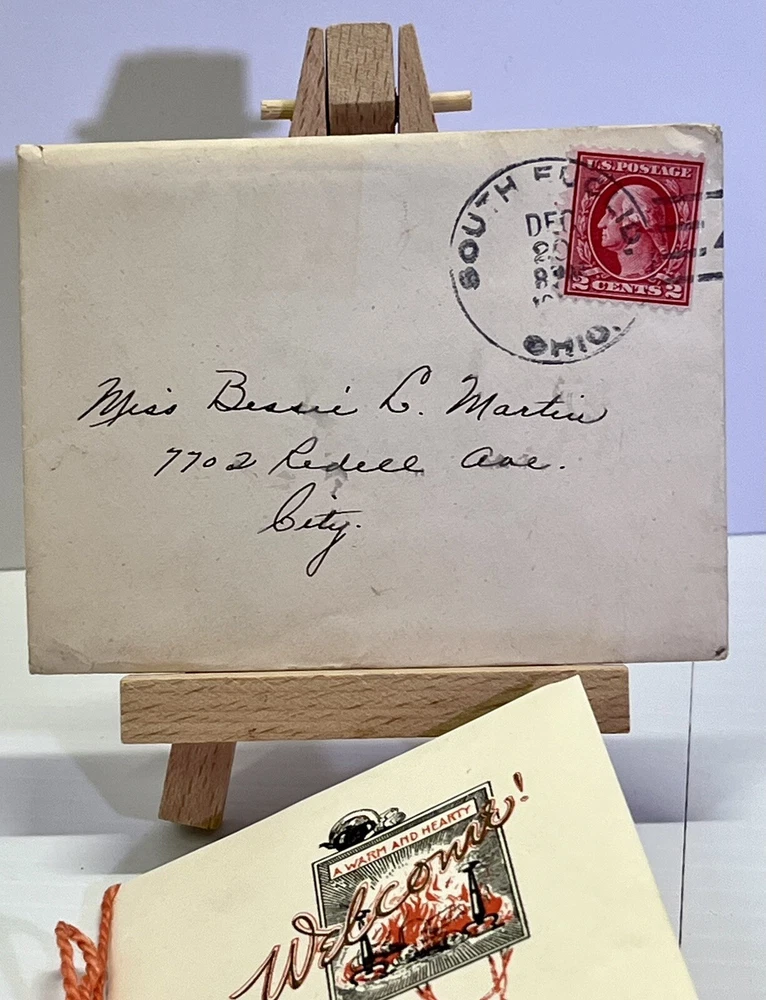 SOUTH EUCLID.
DEC
20
OHIO.
U.S. POSTAGE
2 CENTS 2
Miss Bessie L. Martin
7702 Redell Ave.
City.
A WARM AND HEARTY
Welcome!